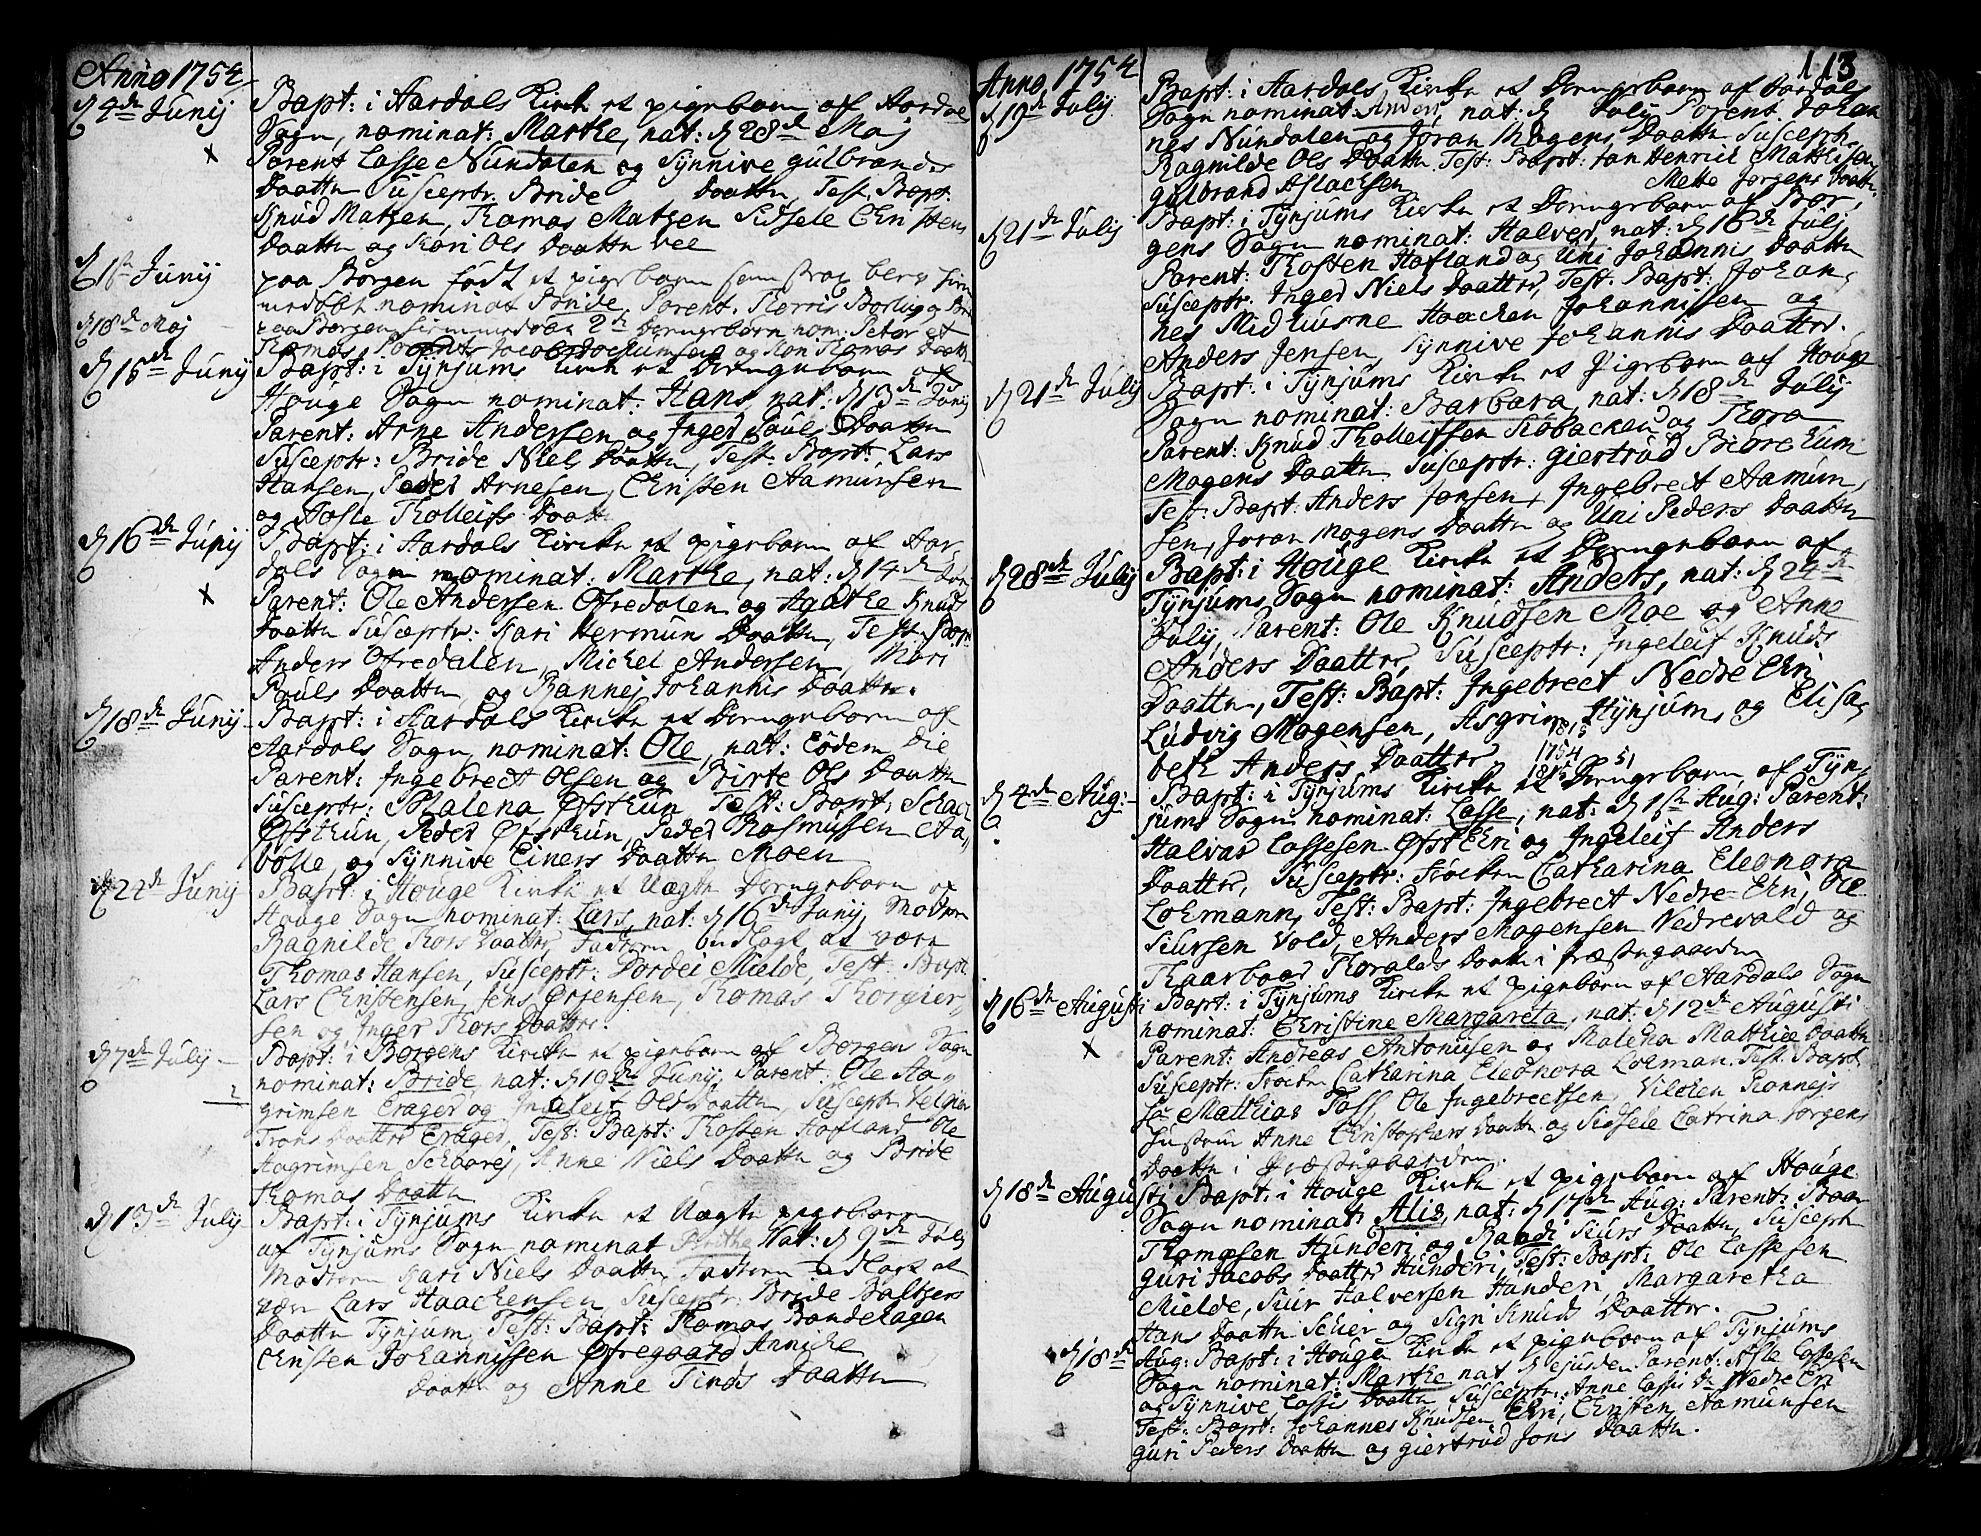 Anno 1754
d 4de Junij
Bapt: i Aardals Kirke et pigebarn af Aardal
Sogn, nominat: Marthe, nat: d 28de Maj
Parent Lasse Nundalen og Synnive Gulbrands
Daatter Susceptr. Bride Daatter, Test. Bapt.
Knud Matzen, Thomas Matzen Sidsele Christens
Daatter og Kari Ols Daatter Vee
d 1ste Junij
paa Borgen født et pigebarn som strax blev hiem
nominat Bride, Parent.
d 18de Maj
paa Borgen 2de Drengebørn nom: Peter et
Thomas, Parent: Jacob og Thomas Daatter
d 16de Junij
Bapt: i Tynjums Kirke et Drengebarn af
Houge Sogn nominat. Hans, nat: d 13de Junij
Parent: Arne Andersen og Inger Pouls Daatter
Susceptr: Bride Niels Daatter, Test. Bapt: Lars
Hansen, Peder Arnesen, Christen Aamunsen
og Aasle Tholleifs Daatt
d 16de Junij
Bapt: i Aardals Kirke et pigebarn af Aar
dals Sogn nominat: Marthe, nat: d 14de Jun
Parent: Ole Andersen Ofredalen og Agathe Knuds
Daatter Susceptr: Kari Hermuns Daatter, Test: Bapt
Anders Ofredalen, Michel Andersen, Mari
Pouls Daatter, og Rannej Johannis Daatter.
d 18de Junij
Bapt: i Aardals Kirke et Drengebarn af
Aardals Sogn, nominat: Ole, nat: Eodem Die
Parent: Ingebrect Olsen og Birte Ols Daatter
Susceptr: Malena Øfsthun Test: Bapt:
Øfsthun, Peder Øfsthun, Peder Rasmussen Aa,
bolle, og Synnive Einers Daatter Moen
d 24de Junij
Bapt: i Houge Kirke et Uægte Drengebarn af
Houge Sogn nominat: Lars, nat: d 16de Junij Moderen
Ragnilde Thors Daatter, Faderen Udlagt at være
Thomas Hansen, Susceptr: Dordei Mielde, Test: Bapt
Lars Christensen, Jens Ørjensen, Thomas Thorgier,
sen og Inger Thors Daatter.
d 7de Julij
Bapt: i Borgens Kirke et pigebarn af Borgens Sogn
nominat: Bride, nat: d 10de Junij Parent: Ole Ha,
grimsen Erager og Ingeleif Ols Daatter, Susceptr
Daatter Erager, Test: Bapt: Thosten Hafland Ole
Hagrimsen Anne Niels Daatter og Bride
Thomas Daatter
d 13de Julij
Bapt: i Tynjums Kirke et Uægte pigebarn
af Tynjums Sogn nominat Brithe Nat: d 9de Julij
Moderen Kari Niels Daatter, Faderen Udlagt at
være Lars Haachensen, Susceptr: Bride Baltzers
Daatter Tynjum, Test: Bapt: Thomas
Christen Johannissen Øfregaard Anniche
Daatter og Anne Daatter
Anno, 1754
113
d 19de Julij
Bapt: i Aardals Kirke et Drengebarn af Aardals
Sogn nominat: Anders, nat: d Julij Parent Johan
nes Nundalen og Joran Mogens Daatter Suscept
Ragnilde Ols Daatter Test: Bapt: Jan Henric Mathisen
Gulbrand Aslachsen Mette Jørgens Daatter
d 21de Julij
Bapt: i Tynjums Kirke et Drengebarn af Bor,
gens Sogn nominat: Halver, nat: d 16de Julij
Parent: Thosten Hafland og Uni Johannis Daatter
Susceptr. Inger Niels Daatter, Test. Bapt: Johan,
nes Haachen Johannissen og
Anders Jensen, Synnive Johannis Daatter.
d 21de Julij
Bapt: i Tynjums Kirke et Pigebarn af Houge
Sogn nominat: Barbara, nat: d 18de Julij
Parent: Knud Tholleifsen og Thora
Mogens Daatter Susceptr: Giertrud
Test: Bapt: Anders Jensen, Ingebrect Aamun,
sen, Joran Mogens Daatter og Uni Peders Daatter
d 28de Julij
Bapt: i Houge Kirke et Drengebarn af
Tynjums Sogn nominat: Anders, nat: d 24de
Julij, Parent: Ole Knudsen Moe og Anne
Anders Daatter, Susceptr: Ingeleif Knuds
Daatter, Test: Bapt: Ingebrect Nedre Eri
Ludvig Mogensen, Asgrim Hynjum, og Elisa,
beth Anders Daatter
1815
1754
d 4de Aug:
Bapt: i Tynjums Kirke et Drengebarn af Tyn,
jums Sogn nominat: Lasse, nat: d 1ste Aug: Parent:
Halvar Lassesen Øfst Eri og Ingeleif Anders
Daatter, Susceptr: Catharina Eleonora
Lohmann, Test: Bapt: Ingebrect Nedre-Eri, Ole
Siursen Vold, Anders Mogensen Nedrevold og
Thoralds Daatter i Præstegaarden
d 16de Augusti
Bapt: i Tynjums Kirke et pigebarn af Aardals Sogn
nominat: Christine Margareta, nat: d 12de Augusti
Parent: Andreas Antoniisen og Malena Matthiæ Daatter
Susceptr: Catharina Eleonora Lohman. Test: Bapt
Matthias Ole Ingebrectsen,
Anne Christophers Daatter og Sidsele Catrina Jørgens
Daatter i Præstegaarden.
d 18de Augusti
Bapt: i Houge Kirke et pigebarn af Houge
Sogn nominat: Alis, nat: d 17de Aug: Parent: Boar
Thomesen Hunderi og Randi Siurs Daatter, Suscept
Guri Jacobs Daatter Hunderi, Test: Bapt: Ole Lassesen
Mielde, Siur Halversen Hunderi, Margaretha
Hans Daatter og Sigri Knuds Daatter.
d 18de
Aug: Bapt: i Houge Kirke et pigebarn af Tynjums
Sogn nominat: Marthe nat d ejusdem Parent: Lassesen
og Synnive Lasses Daatter Susceptr: Anne Lasses Dr Nedre Eri
Test: Bapt: Johannes Knudsen Eri, Christen Aamunsen
Guri Peders Daatter og Giertrud Jons Daatter.